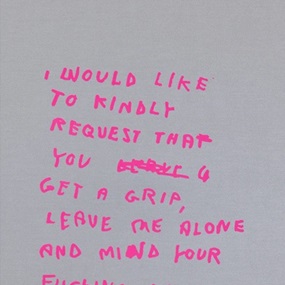 I WOULD LIKE
TO KINDLY
REQUEST THAT
YOU
GET A GRIP,
LEAVE ME ALONE
AND MIND YOUR